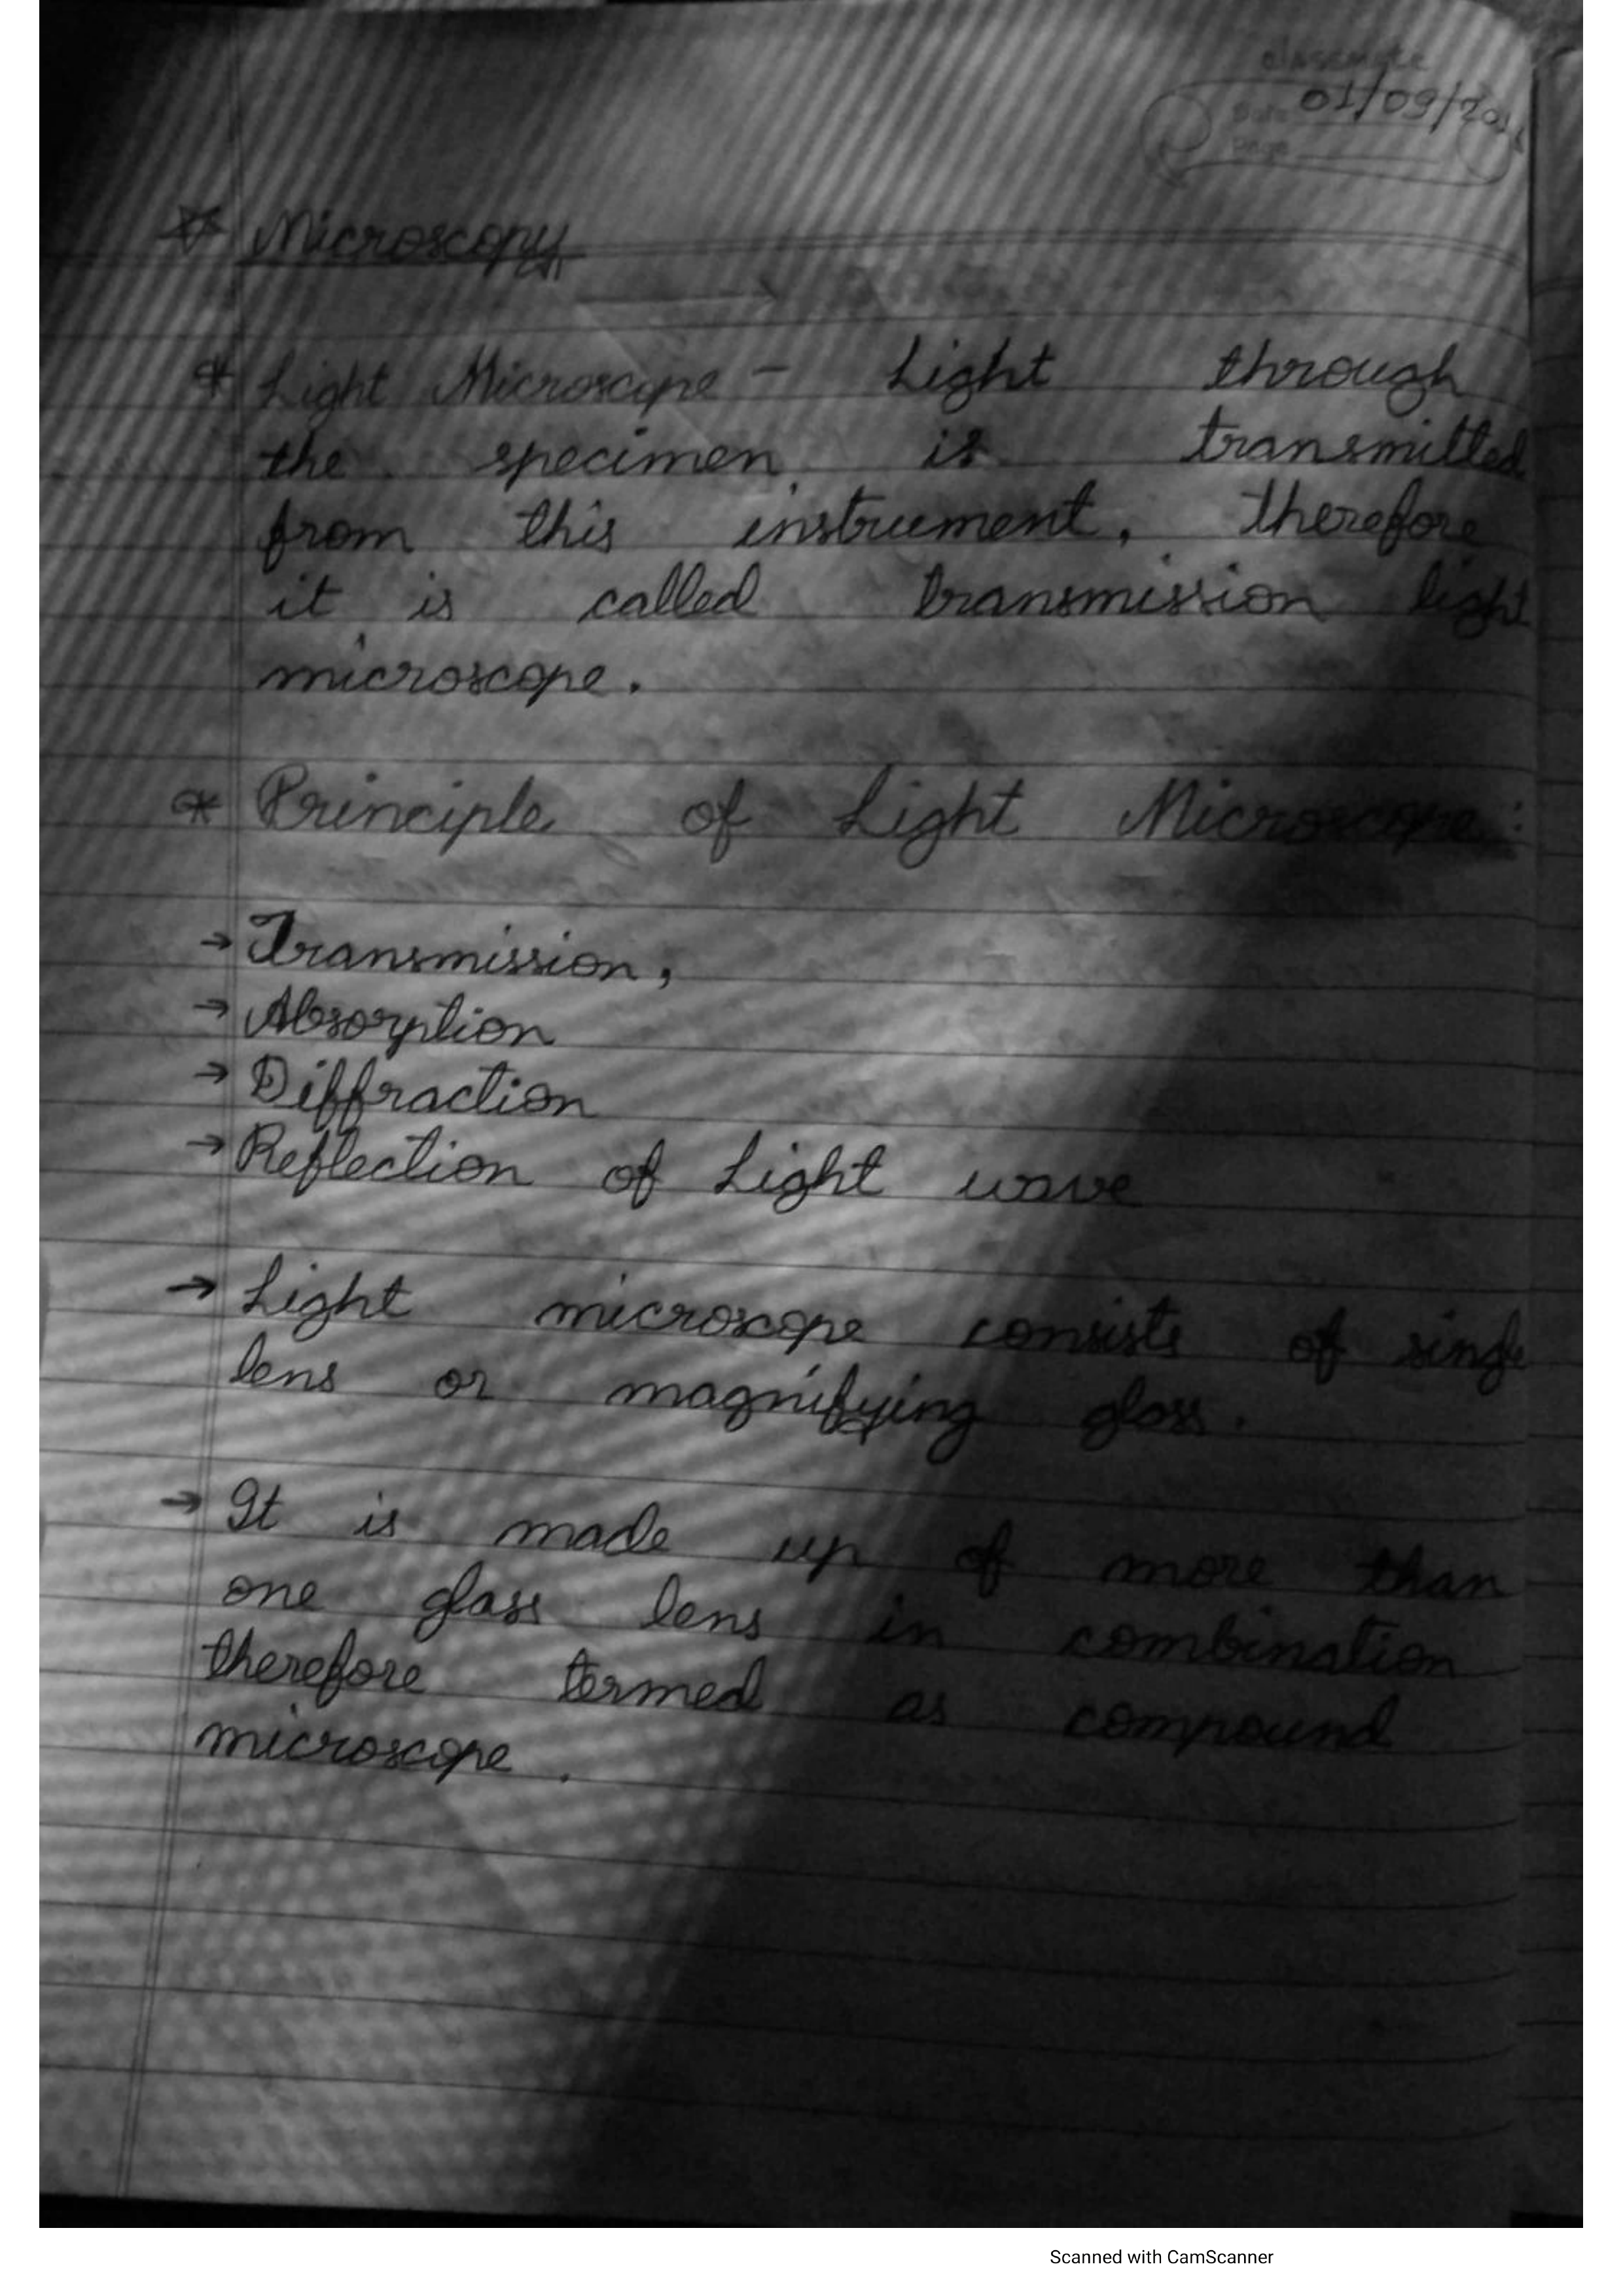 classmate
Date 01/09/20
Page
Microscopy
* Light Microscope - Light through
the specimen is transmitted
from this instrument, therefore
it is called transmission light
microscope.
* Principle of Light Microscope:
→ Transmission,
→ Absorption
→ Diffraction
→ Reflection of Light wave
→ Light microscope consists of single
lens or magnifying glass.
→ It is made up of more than
one glass lens in combination
therefore termed as compound
microscope.
Scanned with CamScanner